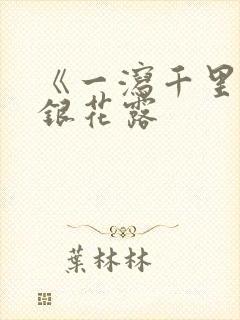 《一瀉千里
銀花露
葉林林